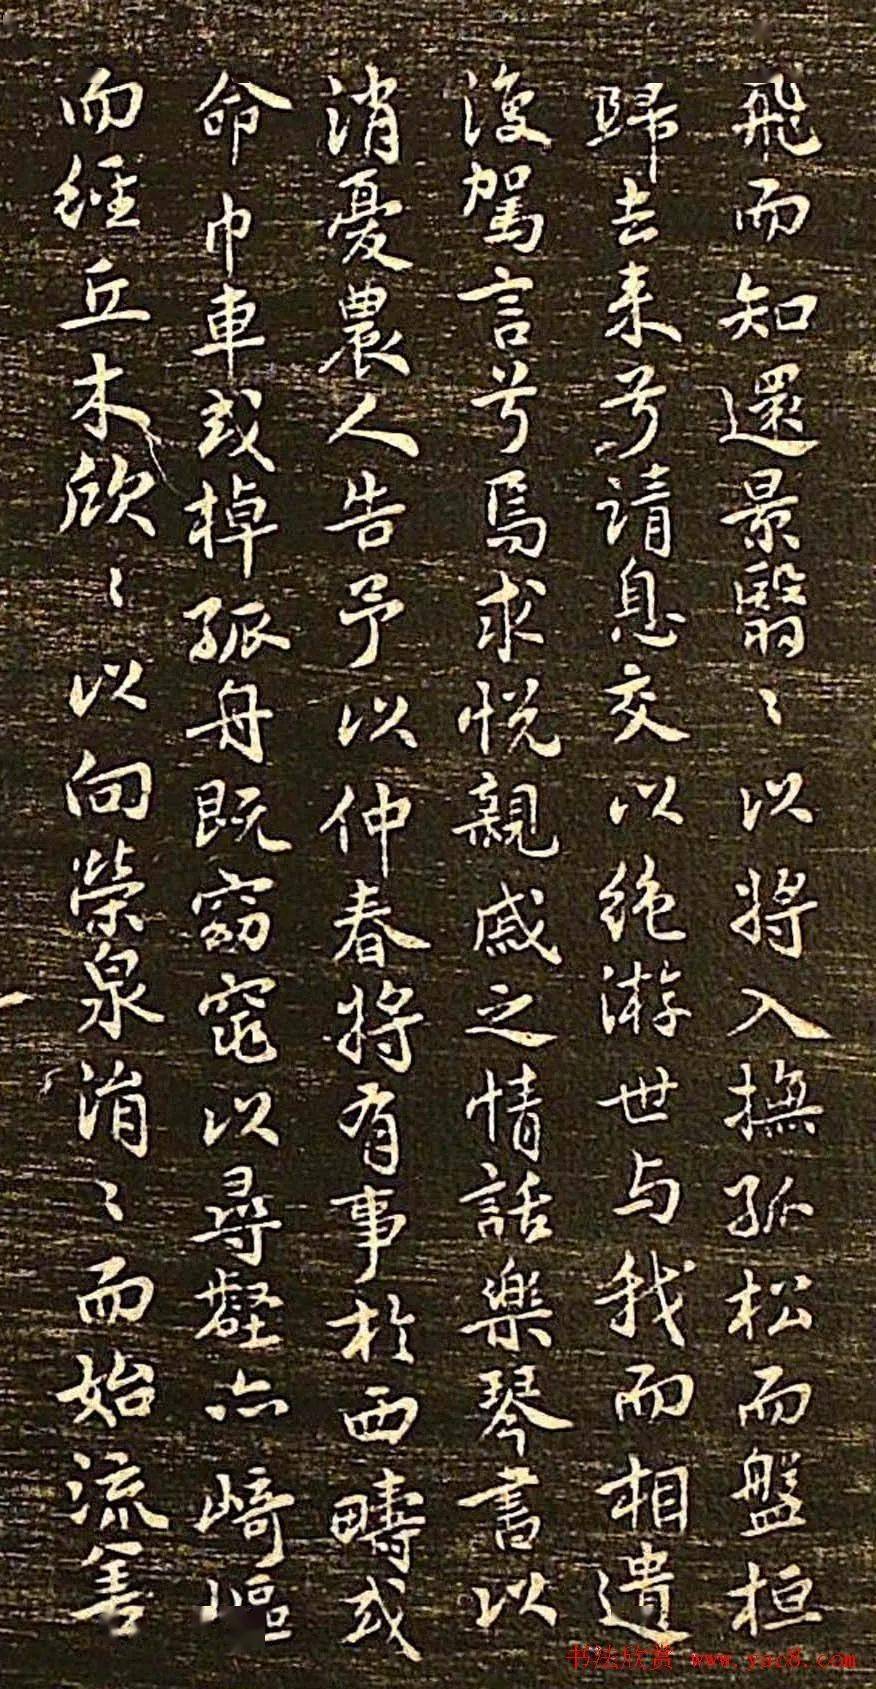 飛而知還景翳〻以將入撫孤松而盤桓
歸去来兮請息交以絶游世与我而相遺
復駕言兮焉求悦親戚之情話樂琴書以
消憂農人告予以仲春將有事於西疇或
命巾車或棹孤舟既窈窕以尋壑亦崎嶇
而經丘木欣〻以向榮泉涓〻而始流善
书法欣赏 www.yac8.com